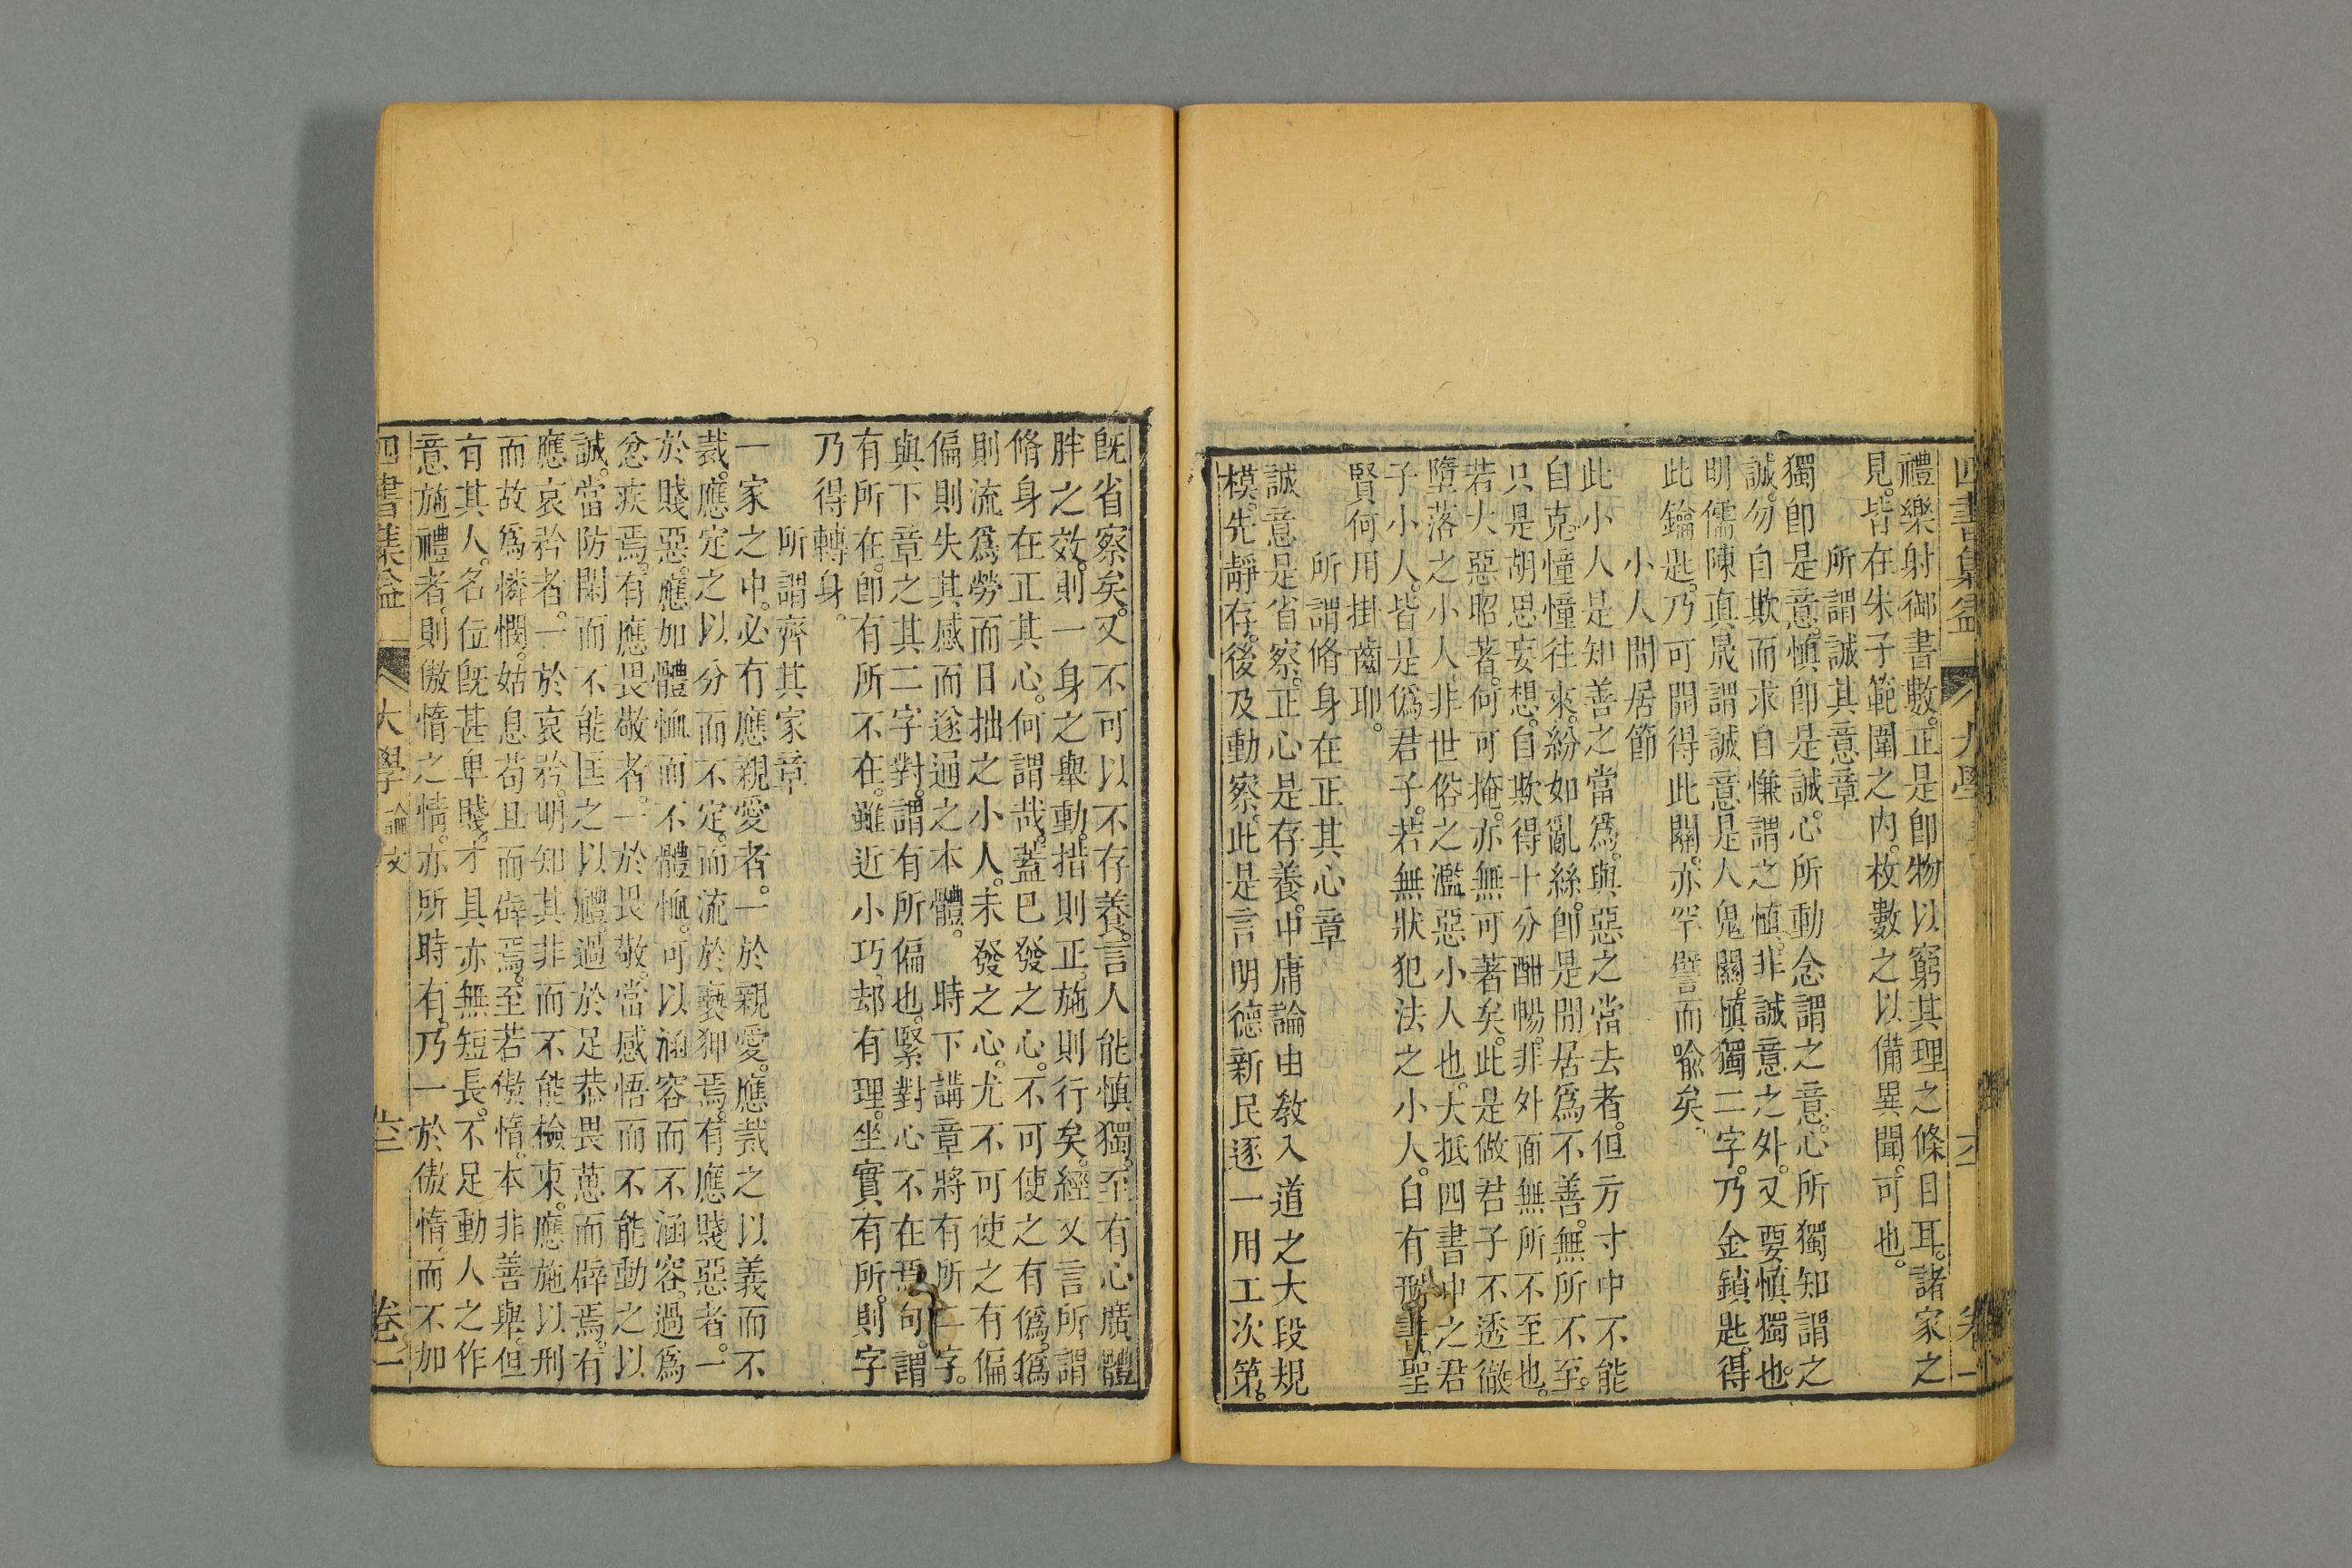 四書集益 大學 六 卷一
禮樂射御書數。正是卽物以窮其理之條目耳。諸家之
見。皆在朱子範圍之內。枚數之以備異聞。可也。
所謂誠其意章
獨卽是意。愼卽是誠。心所動念謂之意。心所獨知謂之
誠。勿自欺而求自慊謂之愼。非誠意之外。又要愼獨也。
明儒陳眞晟謂誠意是人鬼關。愼獨二字。乃金鎖匙。得
此鑰匙。乃可開得此關。亦罕譬而喻矣。
小人閒居節
此小人是知善之當爲。與惡之當去者。但方寸中不能
自克。憧憧往來。紛如亂絲。卽是閒居爲不善。無所不至。
只是胡思妄想。自欺得十分酣暢。非外面無所不至也。
若大惡昭著。何可掩。亦無可著矣。此是做君子不透徹
墮落之小人。非世俗之濫惡小人也。大抵四書中之君
子小人。皆是僞君子。若無狀犯法之小人。自有刑書。聖
賢何用掛齒耶。
所謂脩身在正其心章
誠意是省察。正心是存養。中庸論由敎入道之大段規
模。先靜存。後及動察。此是言明德新民逐一用工次第。
旣省察矣。又不可以不存養。言人能愼獨。至有心廣體
胖之效。則一身之舉動。措則正。施則行矣。經又言所謂
脩身在正其心。何謂哉。蓋已發之心。不可使之有僞。僞
則流爲勞而日拙之小人。未發之心。尤不可使之有偏
偏則失其感而遂通之本體。 時下講章將有所二字。
與下章之其二字對。謂有所偏也。緊對心不在焉句。謂
有所在。卽有所不在。雖近小巧。却有理。坐實有所。則字
乃得轉身。
所謂齊其家章
一家之中。必有應親愛者。一於親愛。應裁之以義而不
裁。應定之以分而不定。而流於褻狎焉。有應賤惡者。一
於賤惡。應加體恤而不體恤。可以涵容而不涵容。過爲
忿疾焉。有應畏敬者。一於畏敬。當感悟而不能動之以
誠。當防閑而不能匡之以禮。過於足恭畏葸而僻焉。有
應哀矜者。一於哀矜。明知其非而不能檢束。應施以刑
而故爲憐憫。姑息苟且而僻焉。至若傲惰。本非善舉。但
有其人。名位旣甚卑賤。才具亦無短長。不足動人之作
意施禮者。則傲惰之情。亦所時有。乃一於傲惰。而不加
四書集益 大學 論文 卷一